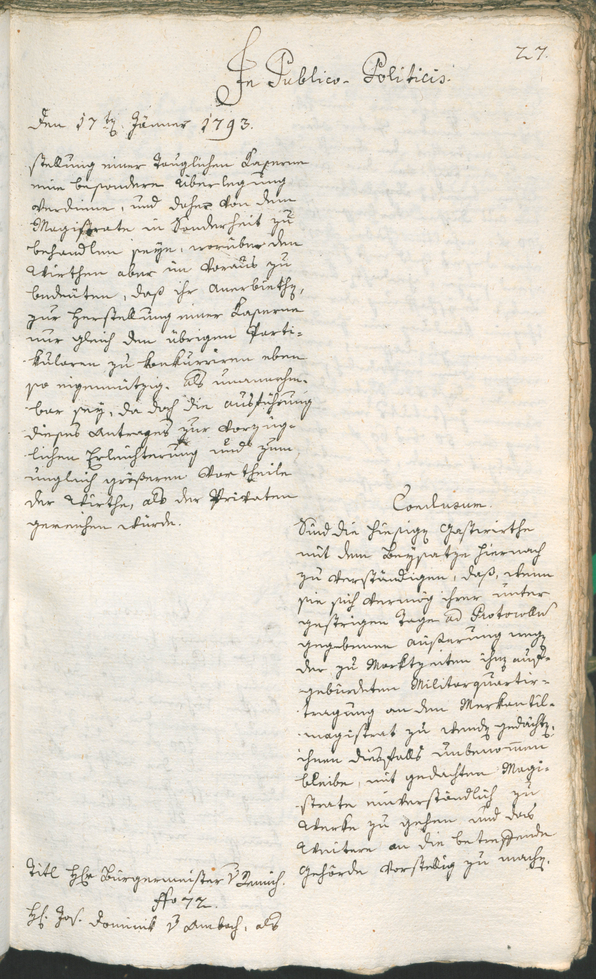 27.
In Publico-Politicis.
den 17t. Jänner 1793.
stellung einer tauglichen Caserne
eine besondere Überlegung
verdiene, und daher von dem
Magistrate in Sonderheit zu
behandlen seye, worüber den
Wirthen aber im Voraus zu
bedeuten, daß ihr Anerbiethen,
zur Herstellung einer Caserne
nur gleich den übrigen Parti-
kularen zu konkurriren eben
so eigennützig, als unannehm-
bar sey, da doch die Ausführung
dieses Antrages zur vorzüg-
lichen Erleichterung und zum
ungleich größeren Vortheile
der Wirthe, als der Privaten
gereichen würde.
Conclusum.
Sind die hiesigen Gastwirthe
mit dem Beysatze hiernach
zu verständigen, daß, wenn
sie sich vermög ihrer unter
gestrigen Tage ad Protocollum
gegebenen Äußerung wegen
der zu Marktzeiten ihnen auf-
gebürdeten Militarquartier-
tragung an den Merkantil-
magistrat zu wenden gedächten,
ihnen diesfalls unbenommen
bleibe, mit gedachten Magi-
strate einverständlich zu
Werke zu gehen, und das
Weitere an die betreffende
Behörde vorstellig zu machen.
Titl Hr Bürgermeister v
72.
H. Jos. Dominik v Ambach, als